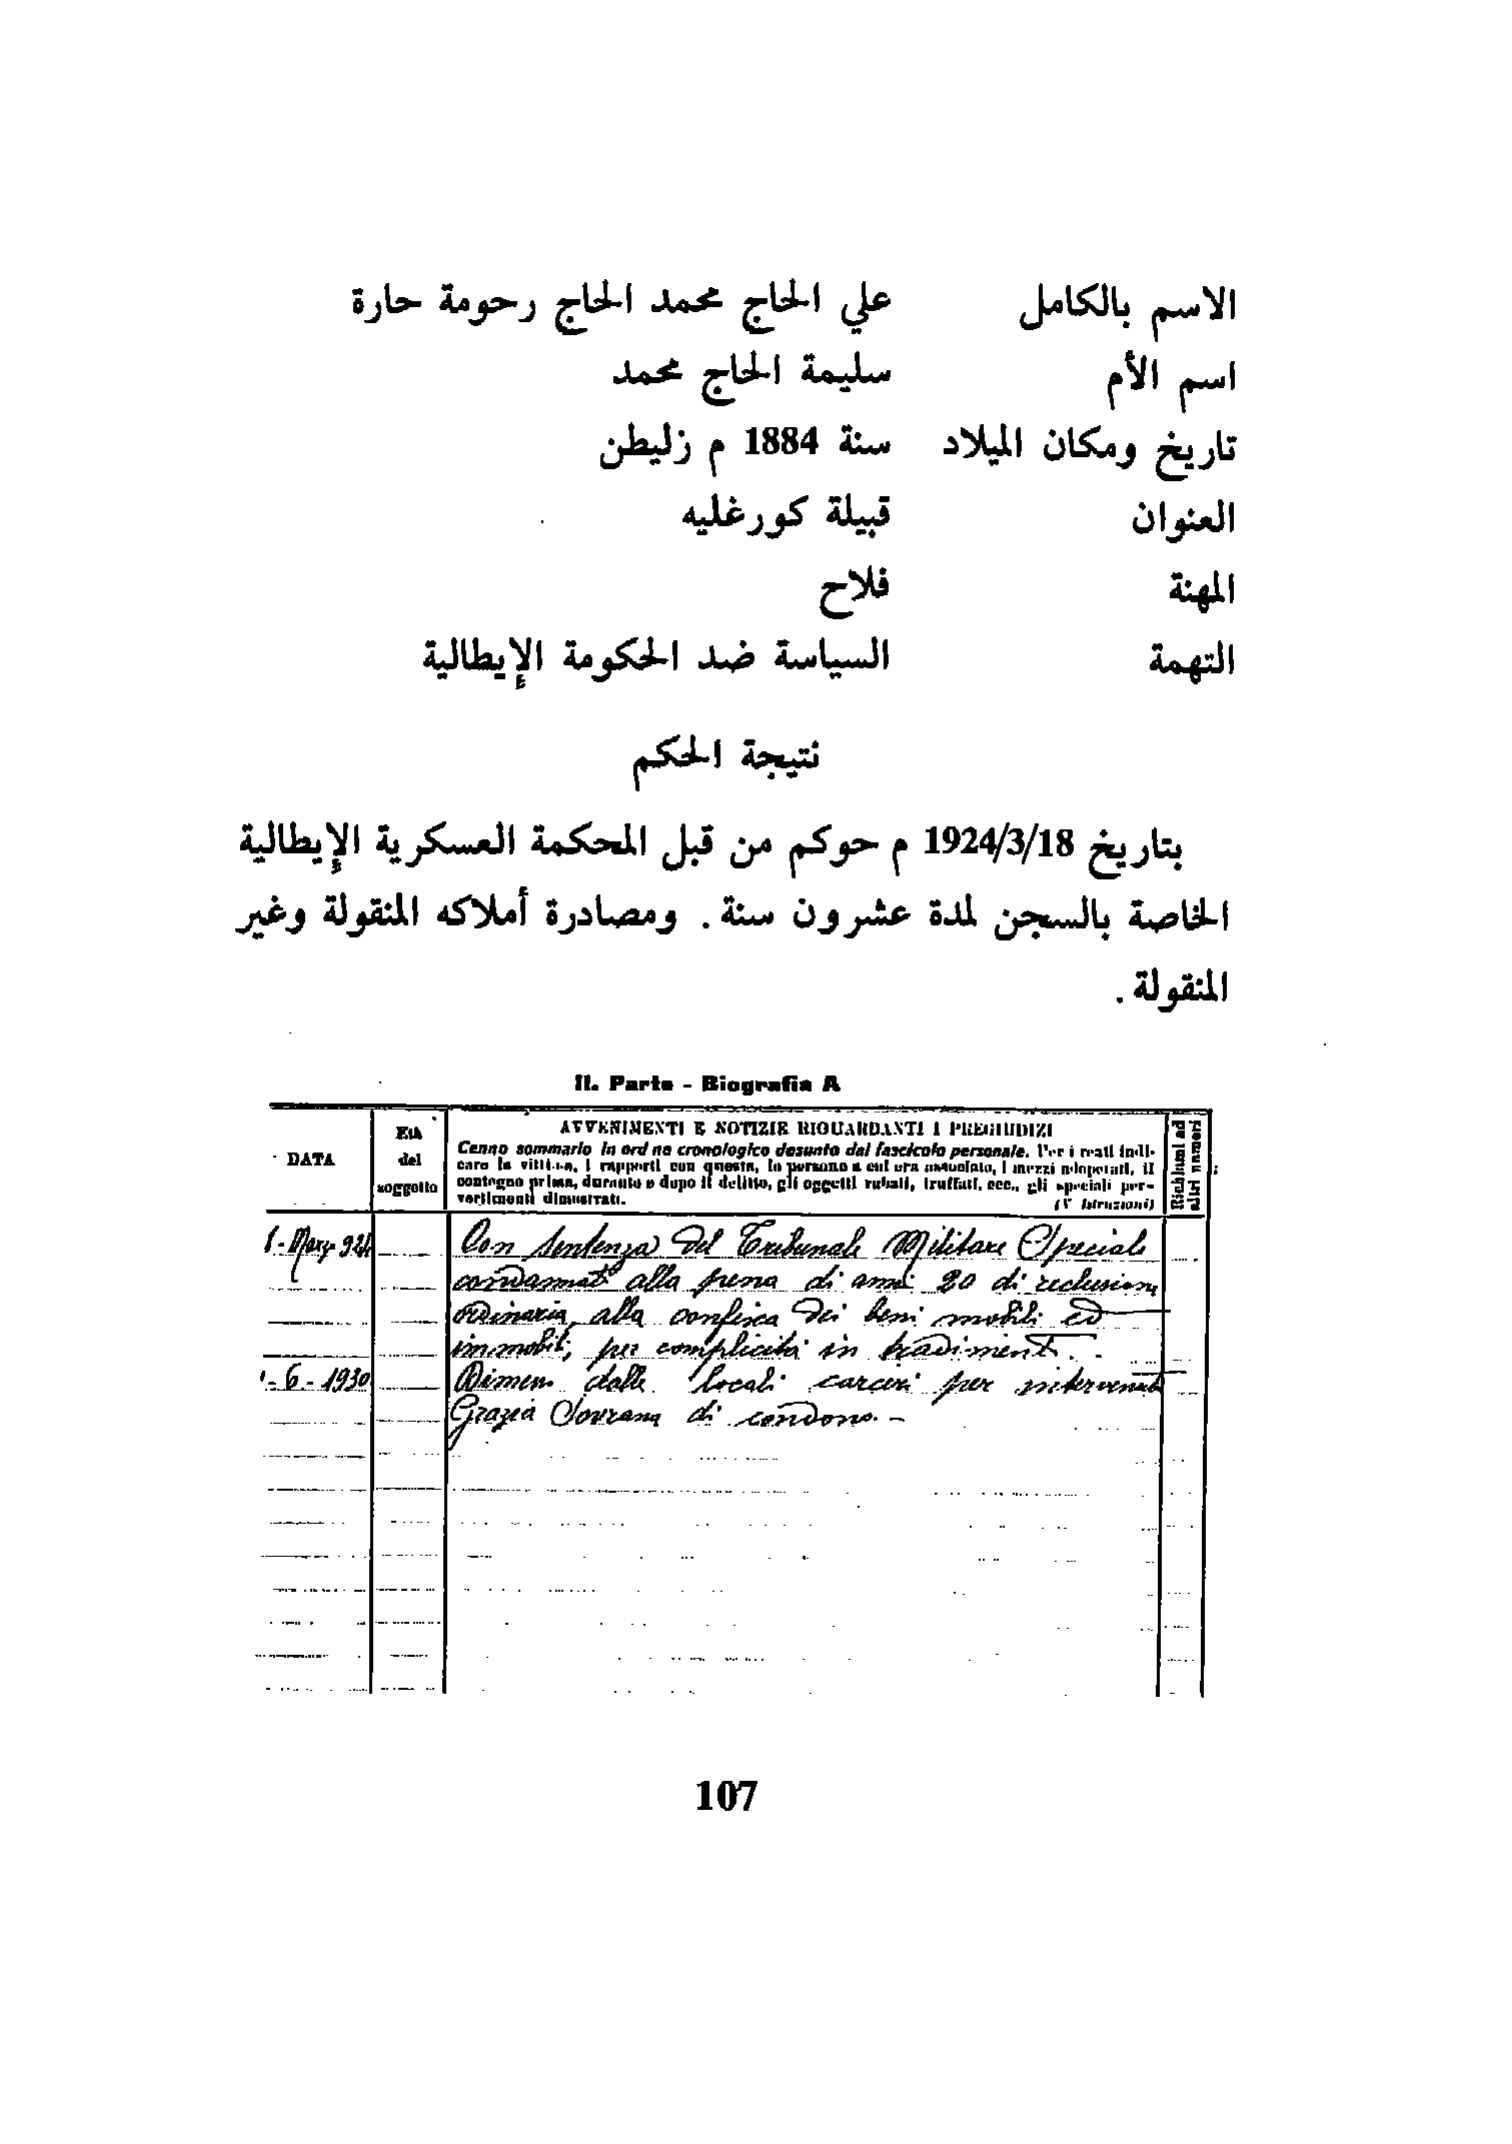 الاسم بالكامل علي الحاج محمد الحاج رحومة حارة
اسم الأم سليمة الحاج محمد
تاريخ ومكان الميلاد سنة 1884 م زليطن
العنوان قبيلة كورغليه
المهنة فلاح
التهمة السياسة ضد الحكومة الإيطالية
نتيجة الحكم
بتاريخ 1924/3/18 م حوكم من قبل المحكمة العسكرية الإيطالية
الخاصة بالسجن لمدة عشرون سنة . ومصادرة أملاكه المنقولة وغير
المنقولة .
II. Parte - Biografia A
DATA
Età
del
soggetto
AVVENIMENTI E NOTIZIE RIGUARDANTI I PREGIUDIZI
Cenno sommario in ordine cronologico desunto dal fascicolo personale. Per i reati indi-
care la vittima, i rapporti con questa, la persona a cui era associato, i mezzi adoperati, il
contegno prima, durante e dopo il delitto, gli oggetti rubati, truffati, ecc., gli speciali per-
vertimenti dimostrati.
(V Istruzioni)
Richiami ad
altri numeri
Con sentenza del Tribunale Militare Speciale
condannato alla pena di anni 20 di reclusione
ordinaria, alla confisca dei beni mobili ed
immobili, per complicità in tradimento.
6 - 1930 Dimesso dalle locali carceri per intervenuta
Grazia Sovrana di condono. -
107